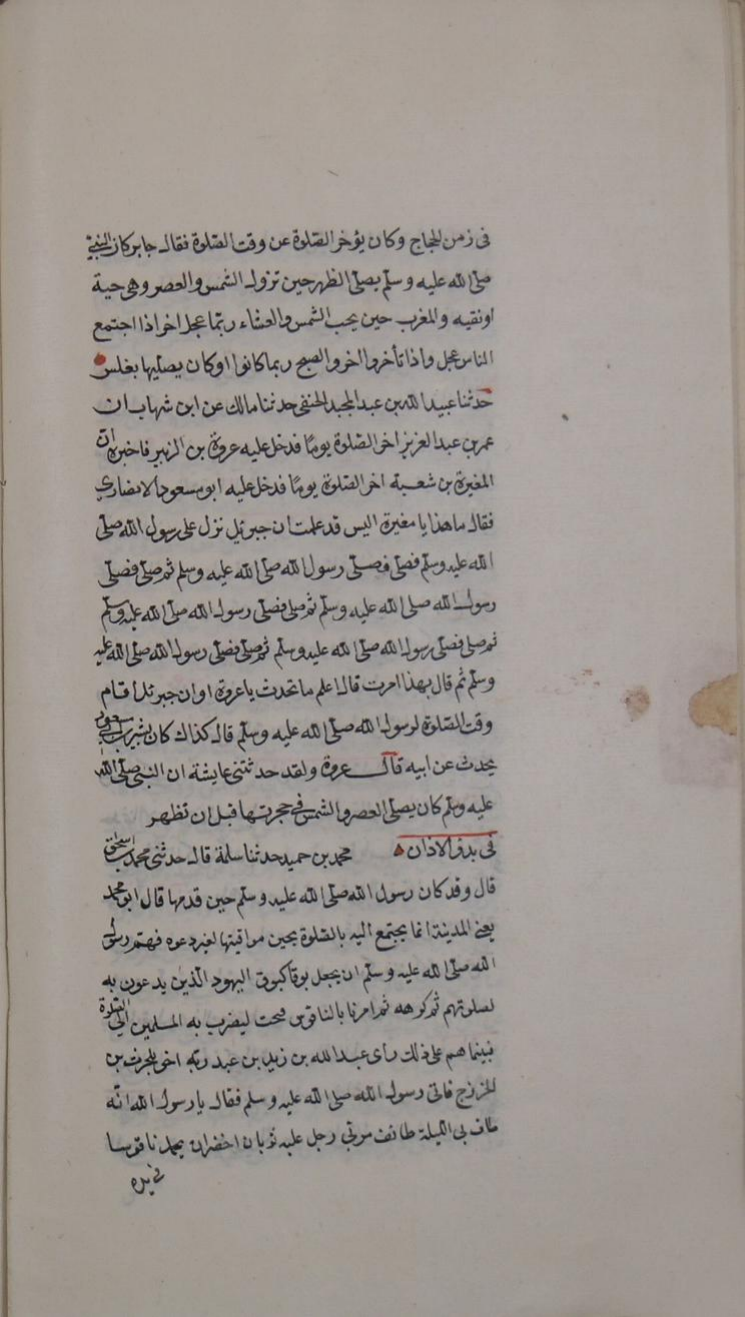 فى زمن الحجاج وكان يؤخر الصلوة عن وقت الصلوة فقال جابر كان النبى
صلى الله عليه وسلم يصلى الظهر حين تزول الشمس والعصر وهى حية
اونقيه والمغرب حين يجب الشمس والعشاء ربما عجل اخر اذا اجتمع
الناس عجل واذا تأخروا اخر والصبح ربما كانوا اوكان يصليها بغلس
حدثنا عبيد الله بن عبد المجيد الحنفى حدثنا مالك عن ابن شهاب ان
عمر بن عبد العزيز اخر الصلوة يومًا فدخل عليه عروة بن الزبير فاخبره ان
المغيرة بن شعبة اخر الصلوة يومًا فدخل عليه ابو مسعود الانصارى
فقال ما هذا يا مغيرة اليس قد علمت ان جبرئيل نزل على رسول الله صلى
الله عليه وسلم فصلى فصلى رسول الله صلى الله عليه وسلم ثم صلى فصلى
رسول الله صلى الله عليه وسلم ثم صلى فصلى رسول الله صلى الله عليه وسلم
ثم صلى فصلى رسول الله صلى الله عليه وسلم ثم صلى فصلى رسول الله صلى الله عليه
وسلم ثم قال بهذا امرت قال اعلم ما تحدث يا عروة اوان جبرئيل اقام
وقت الصلوة لرسول الله صلى الله عليه وسلم قال كذلك كان بشير بن ابى مسعود
يحدث عن ابيه قال عروة ولقد حدثتنى عايشة ان النبى صلى الله
عليه وسلم كان يصلى العصر والشمس فى حجرتها قبل ان تظهر
فى بدؤ الاذان محمد بن حميد حدثنا سلمة قال حدثنى محمد بن اسحاق
قال وقد كان رسول الله صلى الله عليه وسلم حين قدمها قال ابو محمد
يعنى المدينة انما يجتمع اليه بالصلوة بحين مواقيتها لغير دعوه فهتم رسول
الله صلى الله عليه وسلم ان يجعل بوقا كبوق اليهود الذين يدعون به
لصلوتهم ثم كرهه ثم امرنا بالناقوس فنحت ليضرب به المسلمين الى الصلوة
فبينما هم على ذلك رأى عبد الله بن زيد بن عبد ربه اخى بلحرث بن
الخزرج فاتى رسول الله صلى الله عليه وسلم فقال يا رسول الله انه
طاف بى الليلة طائف مر بى رجل عليه ثوبان اخضران يحمل ناقوسا
فى يده